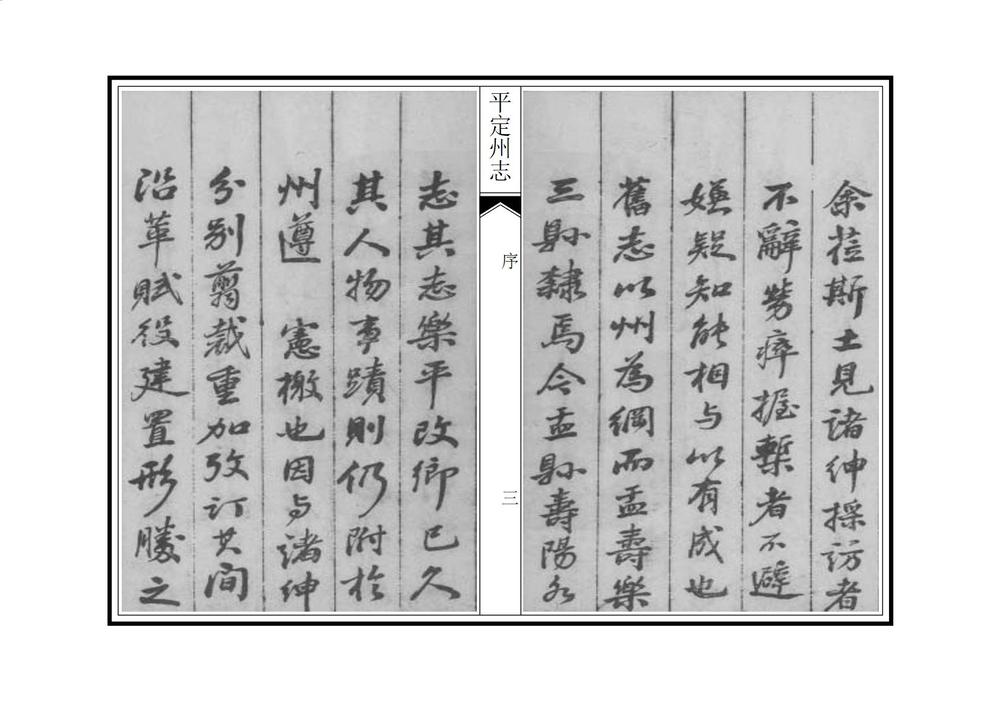 余莅斯土見諸紳採訪者
不辭勞瘁握槧者不避
嫌疑知能相与以有成也
舊志以州為綱而盂壽樂
三縣隸焉今盂縣壽陽各
平定州志
序
三
志其志樂平改鄉已久
其人物事蹟則仍附於
州遵 憲檄也因与諸紳
分別翦裁重加攷訂其间
沿革賦役建置形勝之